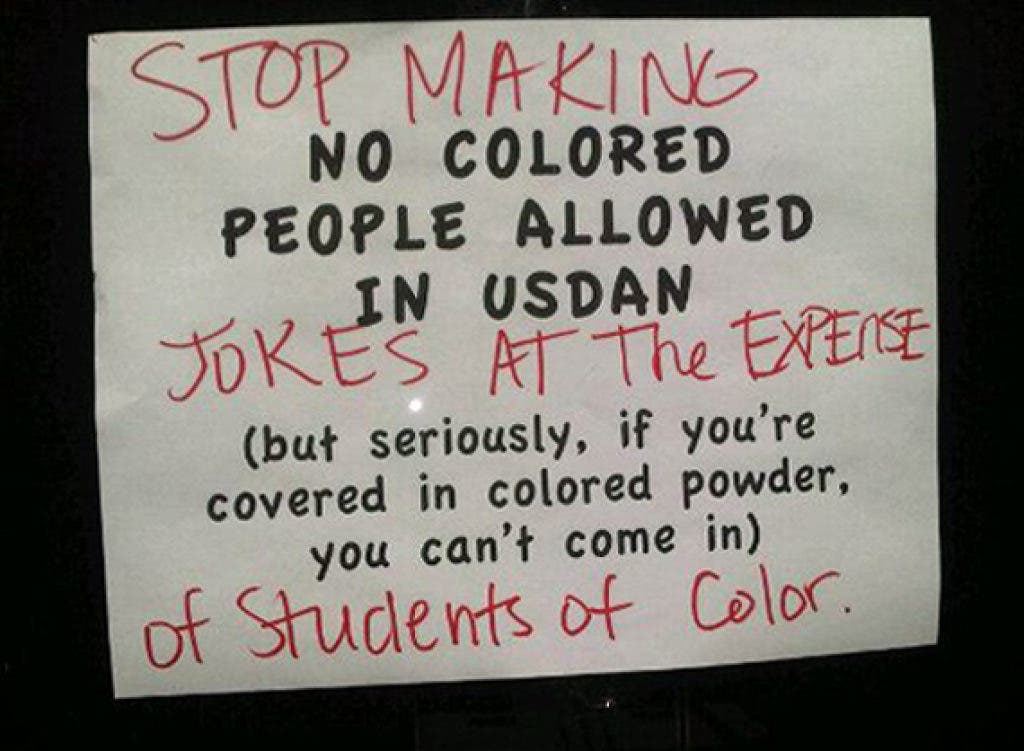 STOP MAKING
NO COLORED
PEOPLE ALLOWED
IN USDAN
JOKES AT The EXPENSE
(but seriously, if you're
covered in colored powder,
you can't come in)
of Students of Color.